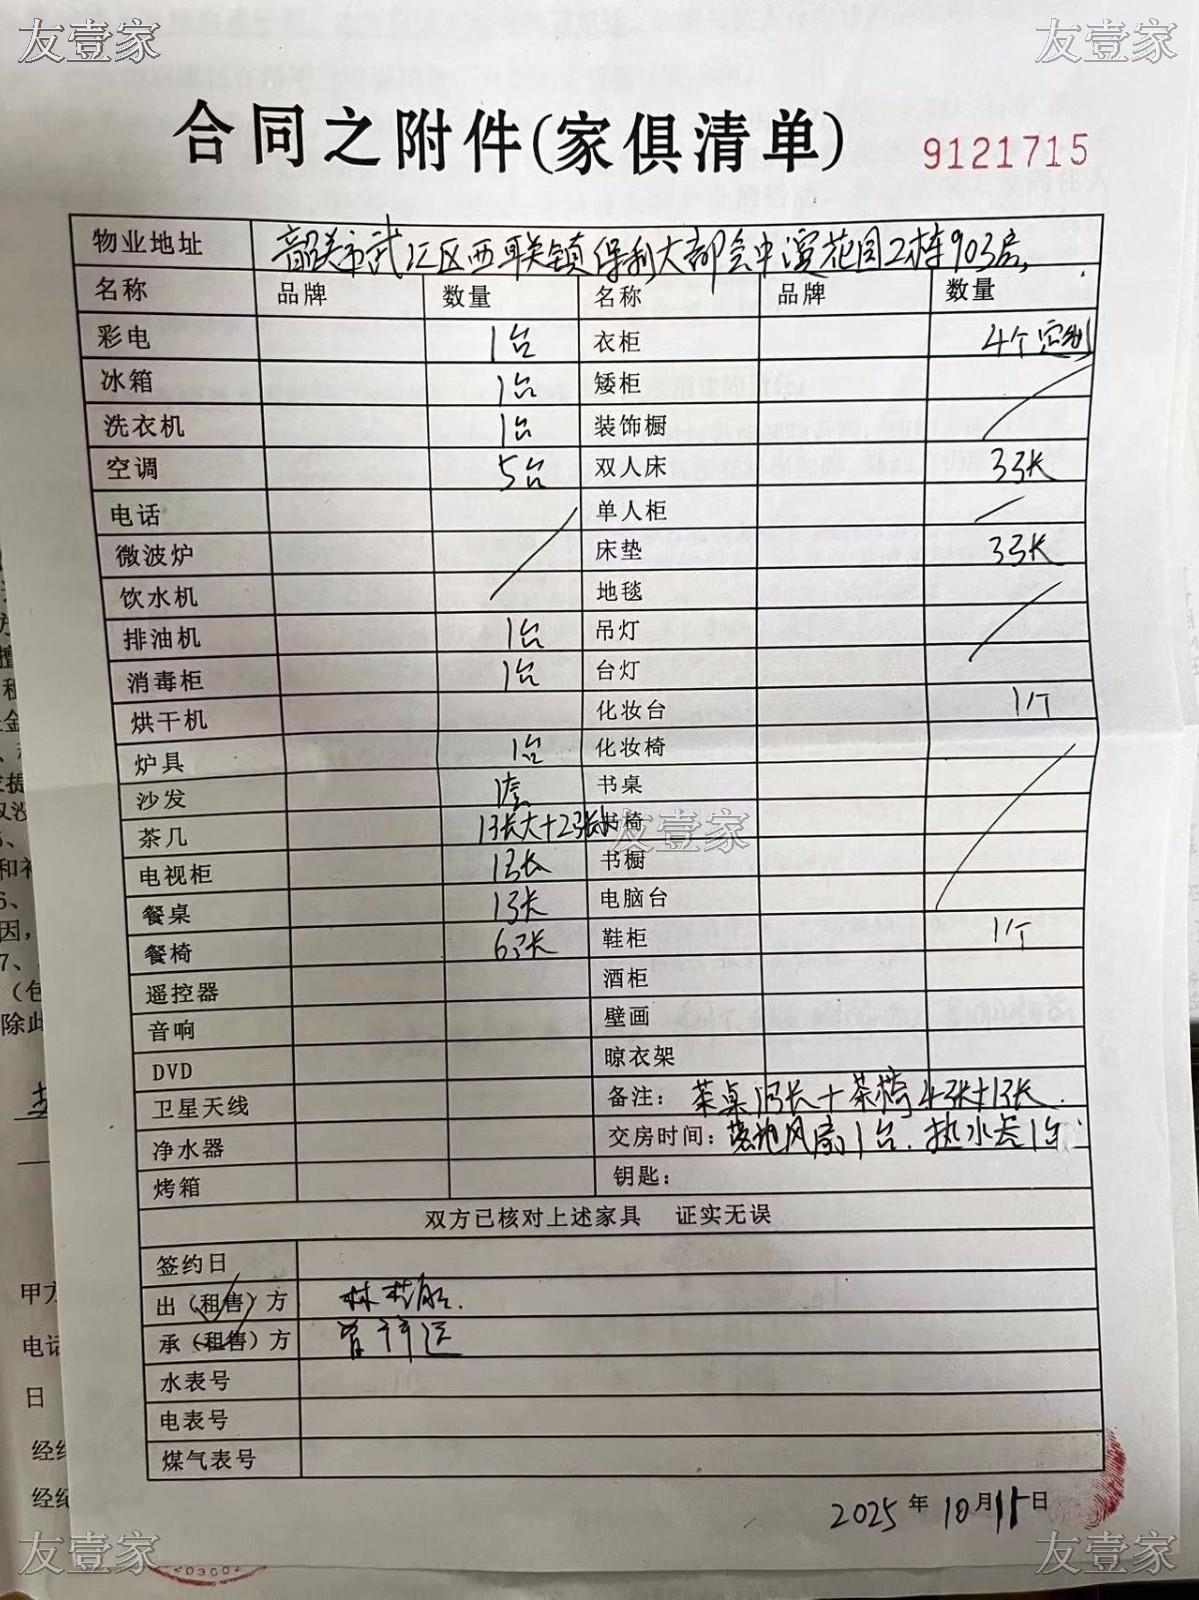 友壹家 友壹家
合同之附件(家俱清单) 9121715
物业地址 韶关市武江区西联镇保利大都会中演花园2栋903房,
名称 品牌 数量 名称 品牌 数量
彩电 1台 衣柜 4个定制
冰箱 1台 矮柜
洗衣机 1台 装饰橱
空调 5台 双人床 3张
电话 单人柜
微波炉 床垫 3张
饮水机 地毯
排油机 1台 吊灯
消毒柜 1台 台灯
烘干机 化妆台 1个
炉具 1台 化妆椅
沙发 1套 书桌
茶几 1张大+2张小 书椅
友壹家
电视柜 1张 书橱
餐桌 1张 电脑台
餐椅 6张 鞋柜 1个
遥控器 酒柜
音响 壁画
DVD 晾衣架
卫星天线 备注: 茶桌1张+茶椅4张+1张.
净水器 交房时间: 落地风扇1台. 热水
烤箱 钥匙:
双方已核对上述家具 证实无误
签约日
出(租售)方 林
承(租售)方 曾
水表号
电表号
煤气表号
2025年10月11日
友壹家 友壹家